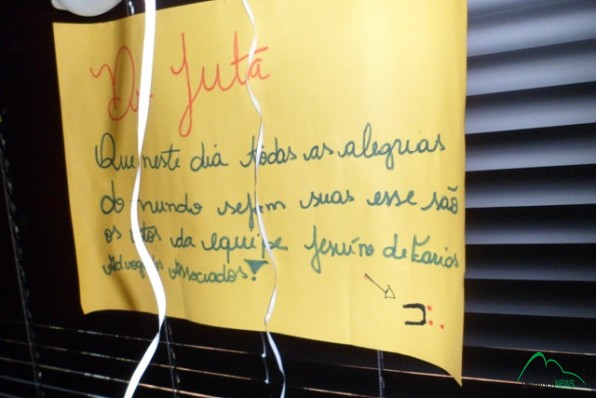 Dr. Jutã
Que neste dia todas as alegrias
do mundo sejam suas esse são
os votos da equipe Jesuíno de Farias
Advogados Associados!
NEWS